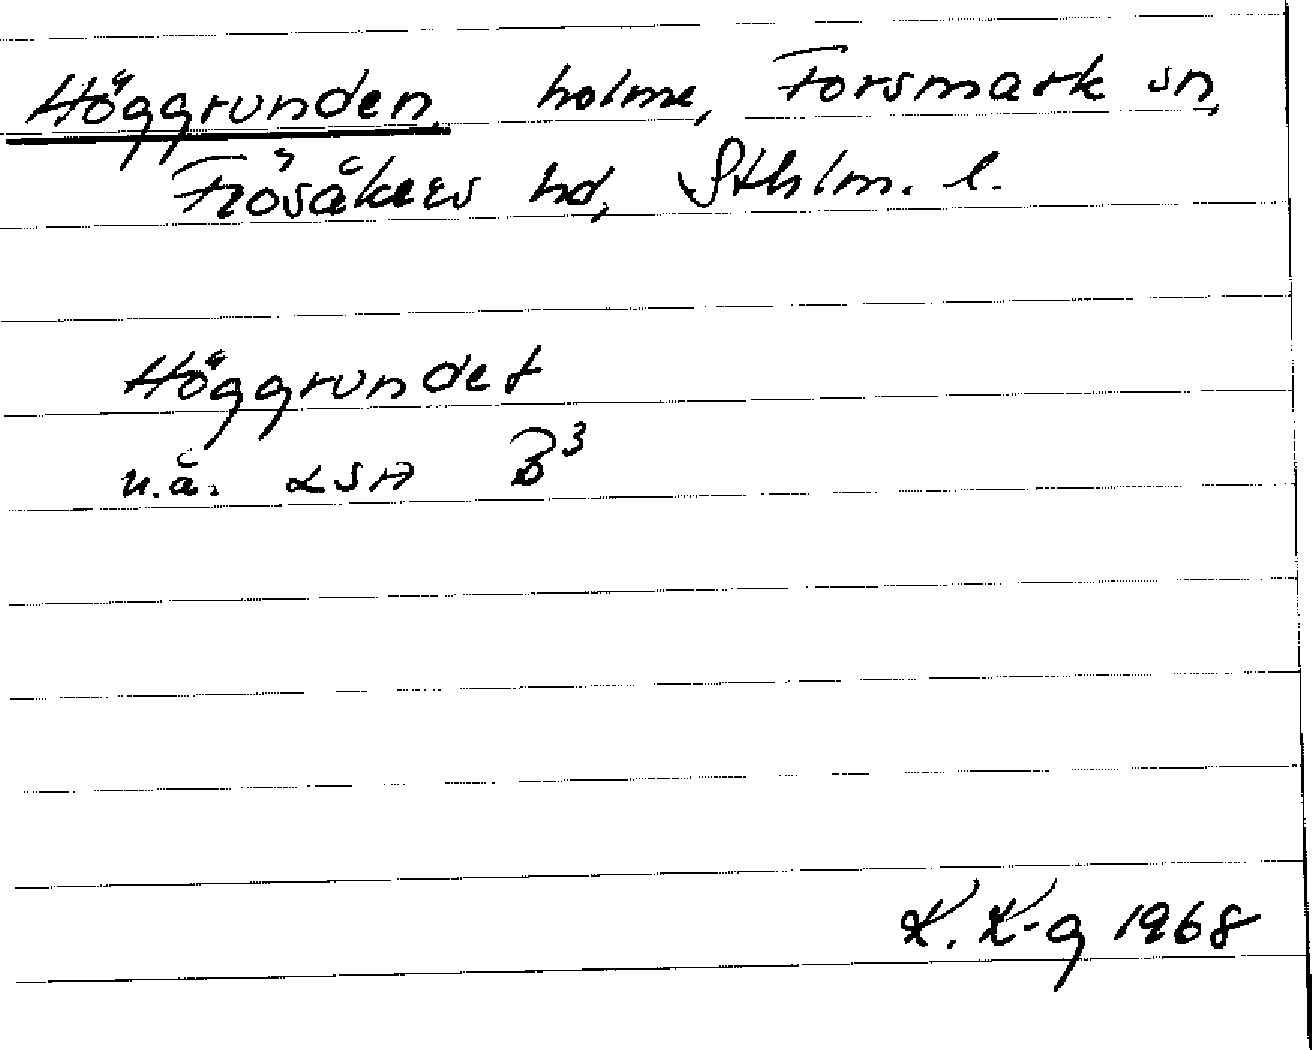 Höggrunden, holme, Forsmark sn,
Frösåkers hd, Sthlm. l.
Höggrundet
u.å. LSA B3
K. K-g 1968